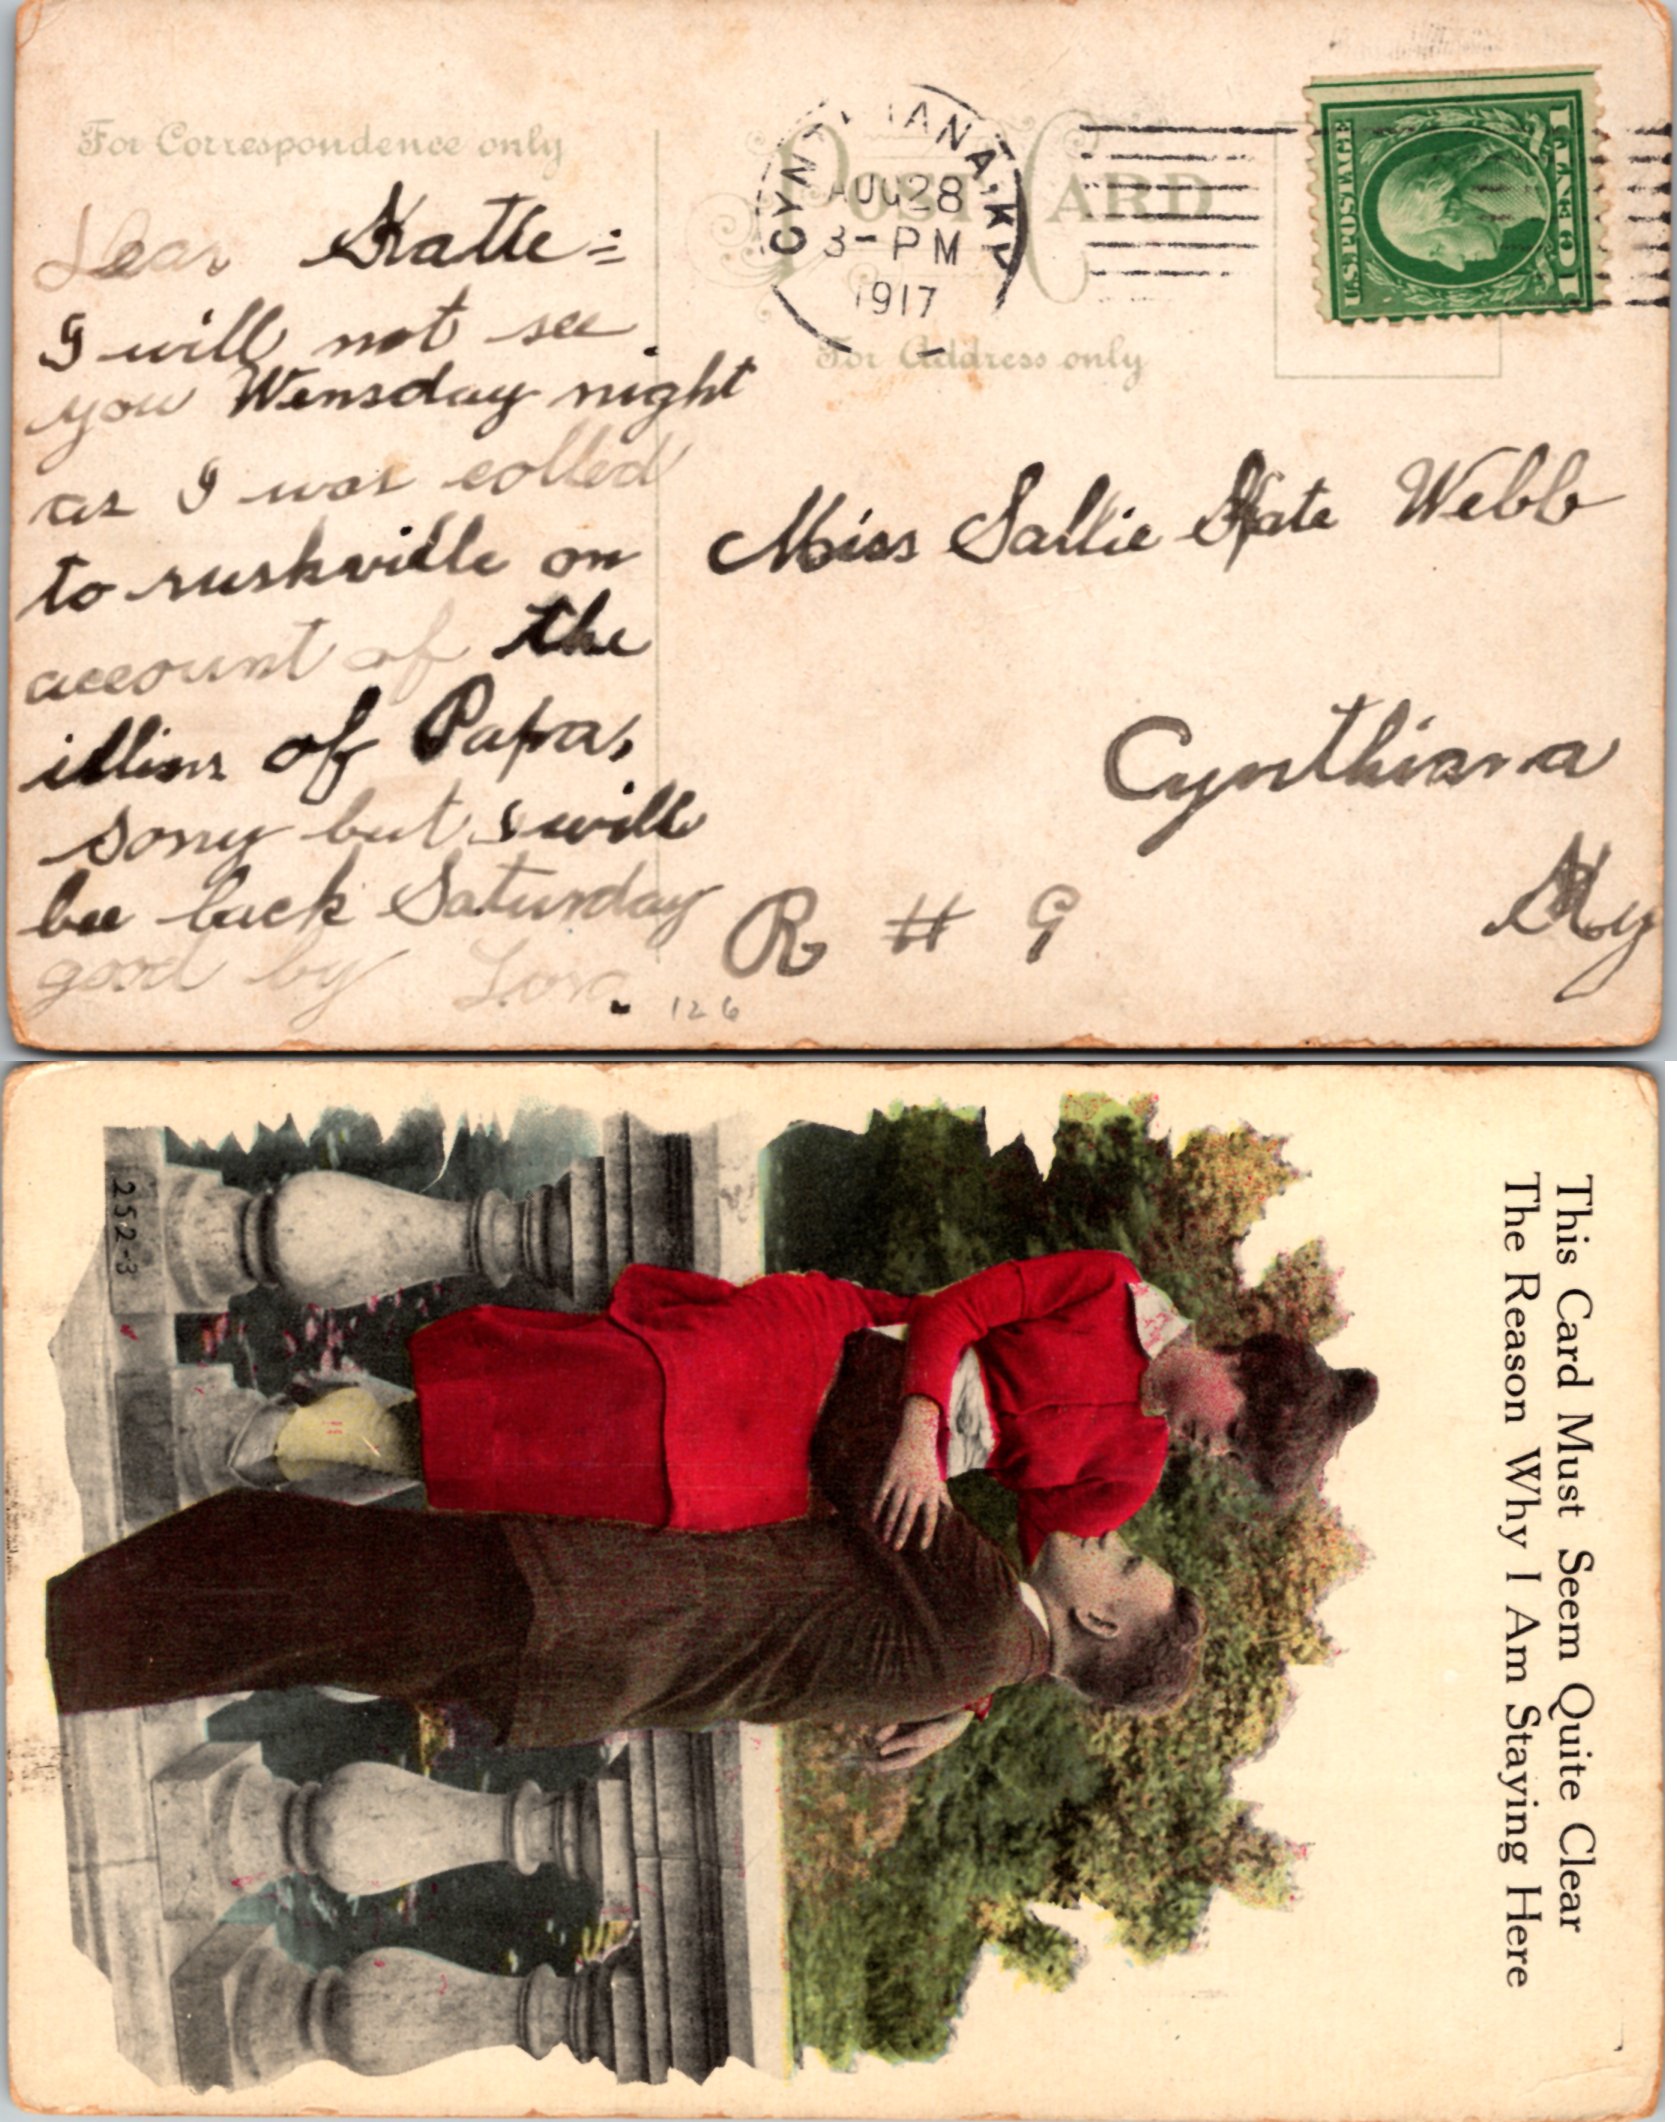 For Correspondence only
POST CARD
For Address only
CYNTHIANA, KY
AUG 28
3-PM
1917
U.S. POSTAGE
1 CENT 1
Dear Katie =
I will not see
you Wensday night
as I was colled
to rushville on
account of the
illins of Papa,
sorry but I will
bee back Saturday
good by
126
Miss Sallie Kate Webb
Cynthiana
Ky
R # 9
This Card Must Seem Quite Clear
The Reason Why I Am Staying Here
252-3